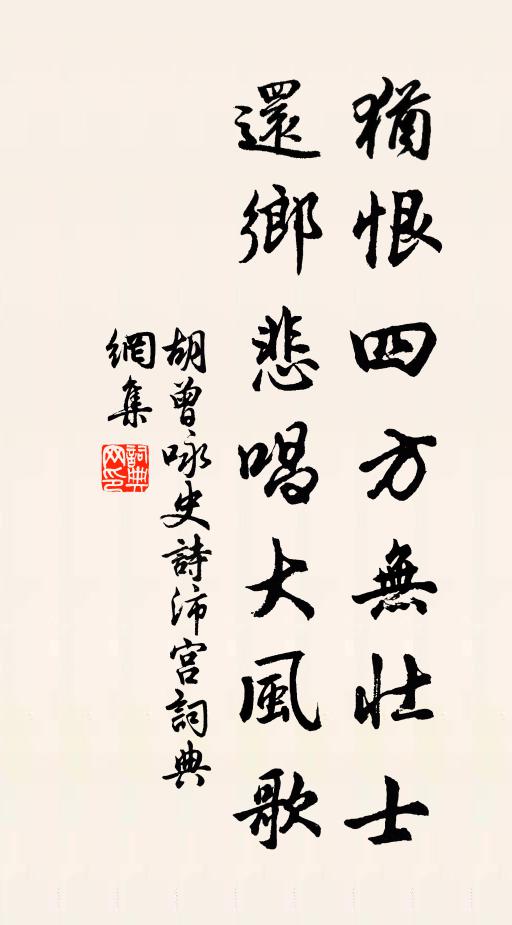 猶恨四方無壯士
還鄉悲唱大風歌
胡曾咏史詩沛宮詞典
網集
詞典網印